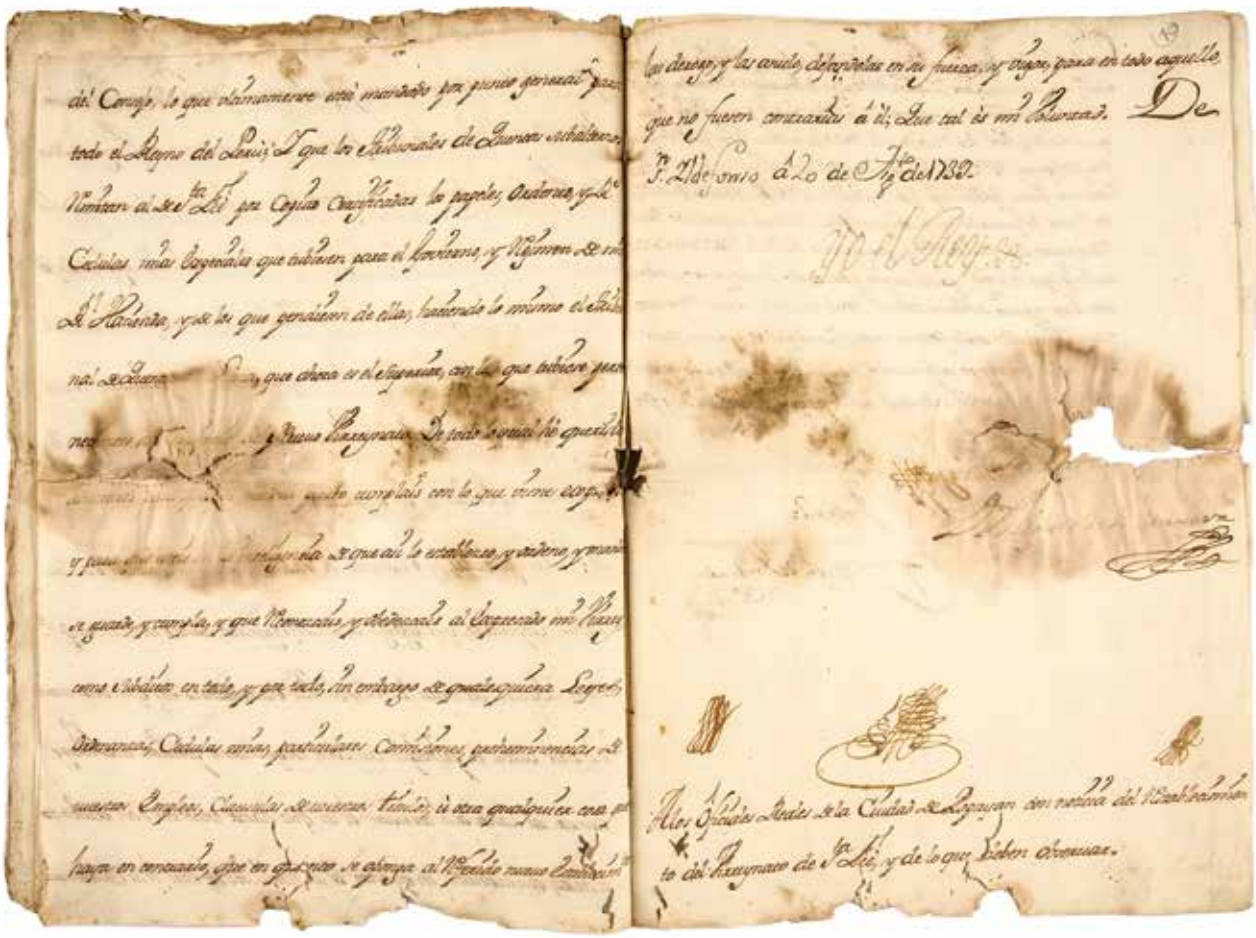 del Consejo, lo que ultimamente está mandado por punto general para
todo el Reyno del Perú; Y que los Tribunales de Quentas subalternos
Remitan al de Sta. Fé por Copias Certificadas los papeles, ordenes, y
Cedulas mias Especiales que tubiesen para el Govierno, y Regimen de mi
Rl. Hacienda, y de los que pendiesen de ellas, haciendo lo mismo el Tribu
nal de que ahora es el Superior, con los que tubiere
nuevo Virreynato. De todo lo qual hé querido
cumplais con lo que viene
y para de que asi lo establezco, y ordeno, y mando
se guarde, y cumpla, y que Reconozcais, y obedezcais al Expresado mi Virrey
como subditos en todo, y por todo, sin embargo de qualesquiera Leyes,
ordenanzas, Cedulas mias, particulares Comisiones, preheminencias de
vuestros Empleos, Clausulas de vuestros titulos, ù otra qualquier cosa que
haya en contrario, que en quanto se oponga al Referido nuevo
19
las derogo, y las anulo, dejandolas en su fuerza, y vigor, para en todo aquello,
que no fueren contrarias á él; Que tal és mi Voluntad. De
Sn. Ildefonso á 20 de Agto. de 1739.
Yo el Rey.
A los Oficiales Reales de la Ciudad de Popayan con noticia del Restablecimien
to del Virreynato de Sta. Fé, y de lo que deben observar.